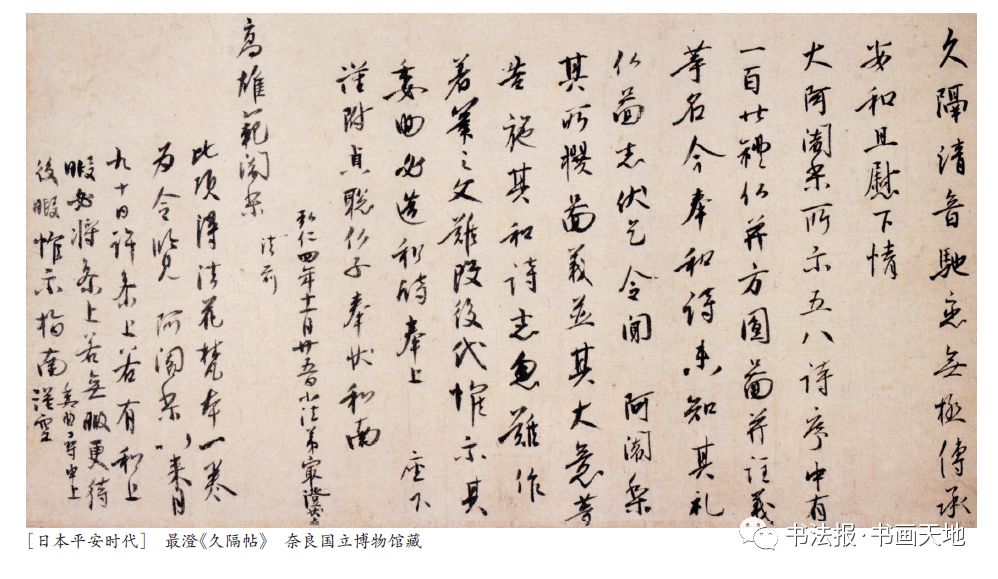 久隔清音馳恋無極傳承
安和且慰下情
大阿闍梨所示五八詩序中有
一百廿禮仏并方圓圖并註義
等名今奉和詩未知其礼
仏圖者伏乞令聞 阿闍梨
其所撰圖義並其大意等
告施其和詩者忽難作
著筆之文難改後代惟示其
委曲必造和詩奉上 座下
謹附貞聡仏子奉状和南
弘仁四年十一月廿五日小法弟最澄状上
高雄範闍梨
法前
此頃得法花梵本一巻
為令覧 阿闍梨以来月
九十日許参上若有和上
暇必将参上若無暇更待
後暇惟示指南 謹空
[日本平安时代] 最澄《久隔帖》 奈良国立博物馆藏
书法报·书画天地